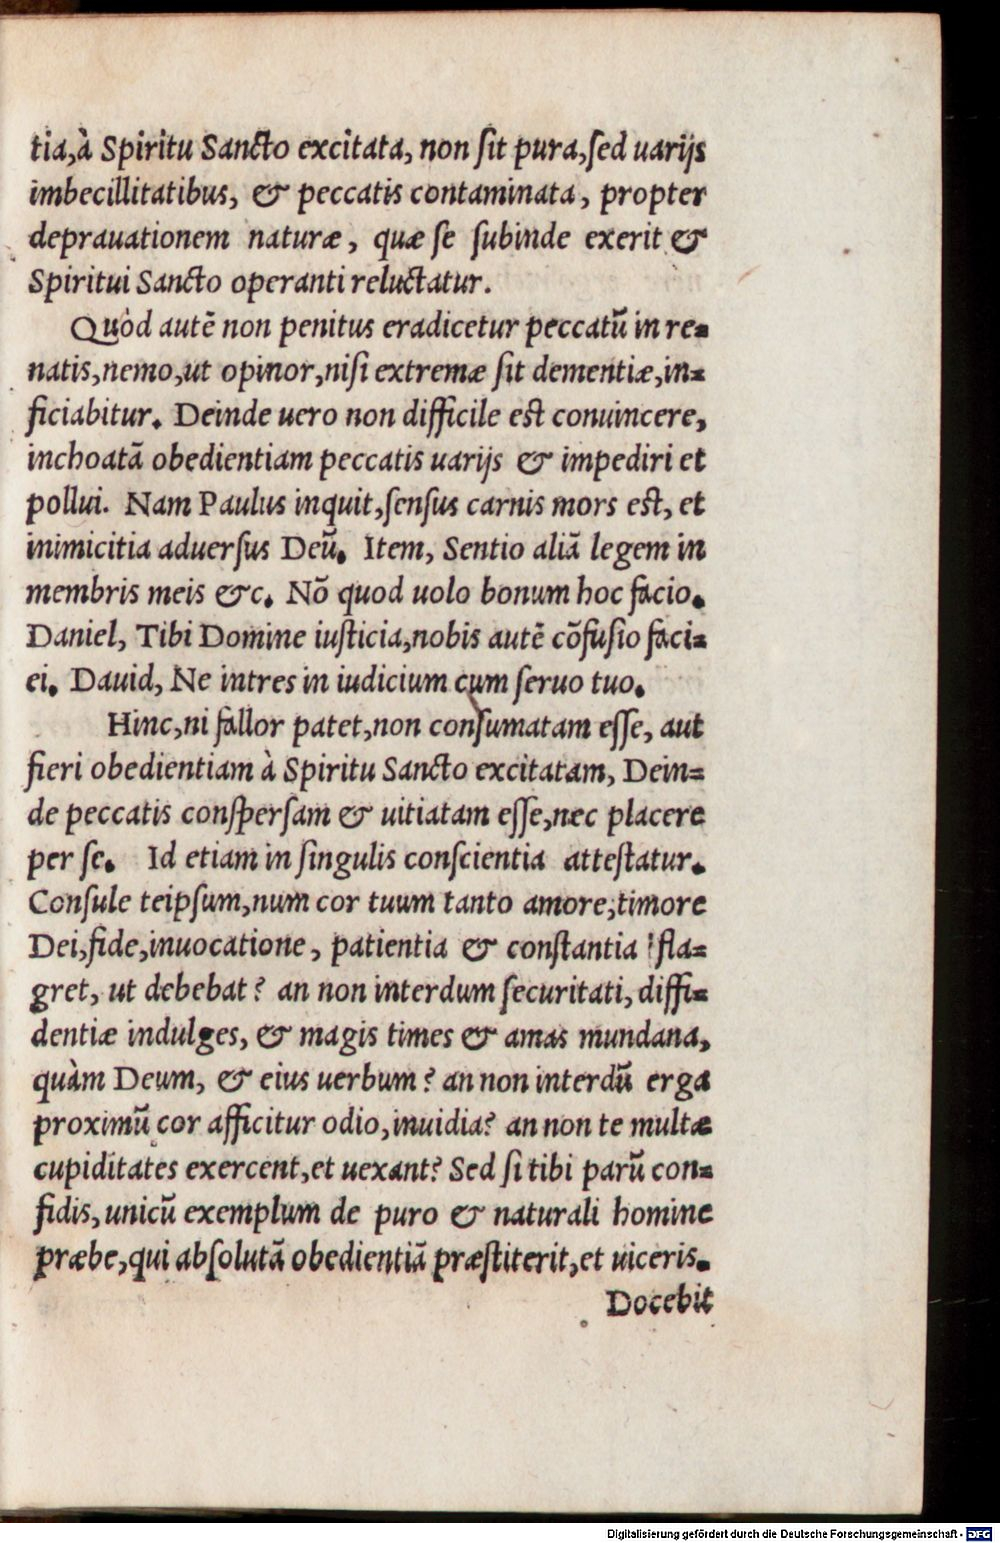 tia,à Spiritu Sancto excitata, non ſit pura,ſed uarijs
imbecillitatibus, & peccatis contaminata, propter
deprauationem naturæ, quæ ſe ſubinde exerit &
Spiritui Sancto operanti reluctatur.
Quòd autẽ non penitus eradicetur peccatũ in re⸗
natis,nemo,ut opinor,niſi extremæ ſit dementiæ,in⸗
ficiabitur. Deinde uero non difficile eſt conuincere,
inchoatã obedientiam peccatis uarijs & impediri et
pollui. Nam Paulus inquit,ſenſus carnis mors eſt, et
inimicitia aduerſus Deũ. Item, Sentio aliã legem in
membris meis &c. Nõ quod uolo bonum hoc facio.
Daniel, Tibi Domine iuſticia,nobis autẽ cõfuſio faci⸗
ei. Dauid, Ne intres in iudicium cum ſeruo tuo.
Hinc,ni fallor patet,non conſumatam eſſe, aut
fieri obedientiam à Spiritu Sancto excitatam, Dein⸗
de peccatis conſperſam & uitiatam eſſe,nec placere
per ſe. Id etiam in ſingulis conſcientia atteſtatur.
Conſule teipſum,num cor tuum tanto amore,timore
Dei,fide,inuocatione, patientia & conſtantia fla⸗
gret, ut debebat? an non interdum ſecuritati, diffi⸗
dentiæ indulges, & magis times & amas mundana,
quàm Deum, & eius uerbum? an non interdũ erga
proximũ cor afficitur odio,inuidia? an non te multæ
cupiditates exercent,et uexant? Sed ſi tibi parũ con⸗
fidis,unicũ exemplum de puro & naturali homine
præbe,qui abſolutã obedientiã præſtiterit,et uiceris.
Docebit
Digitalisierung gefördert durch die Deutsche Forschungsgemeinschaft - DFG